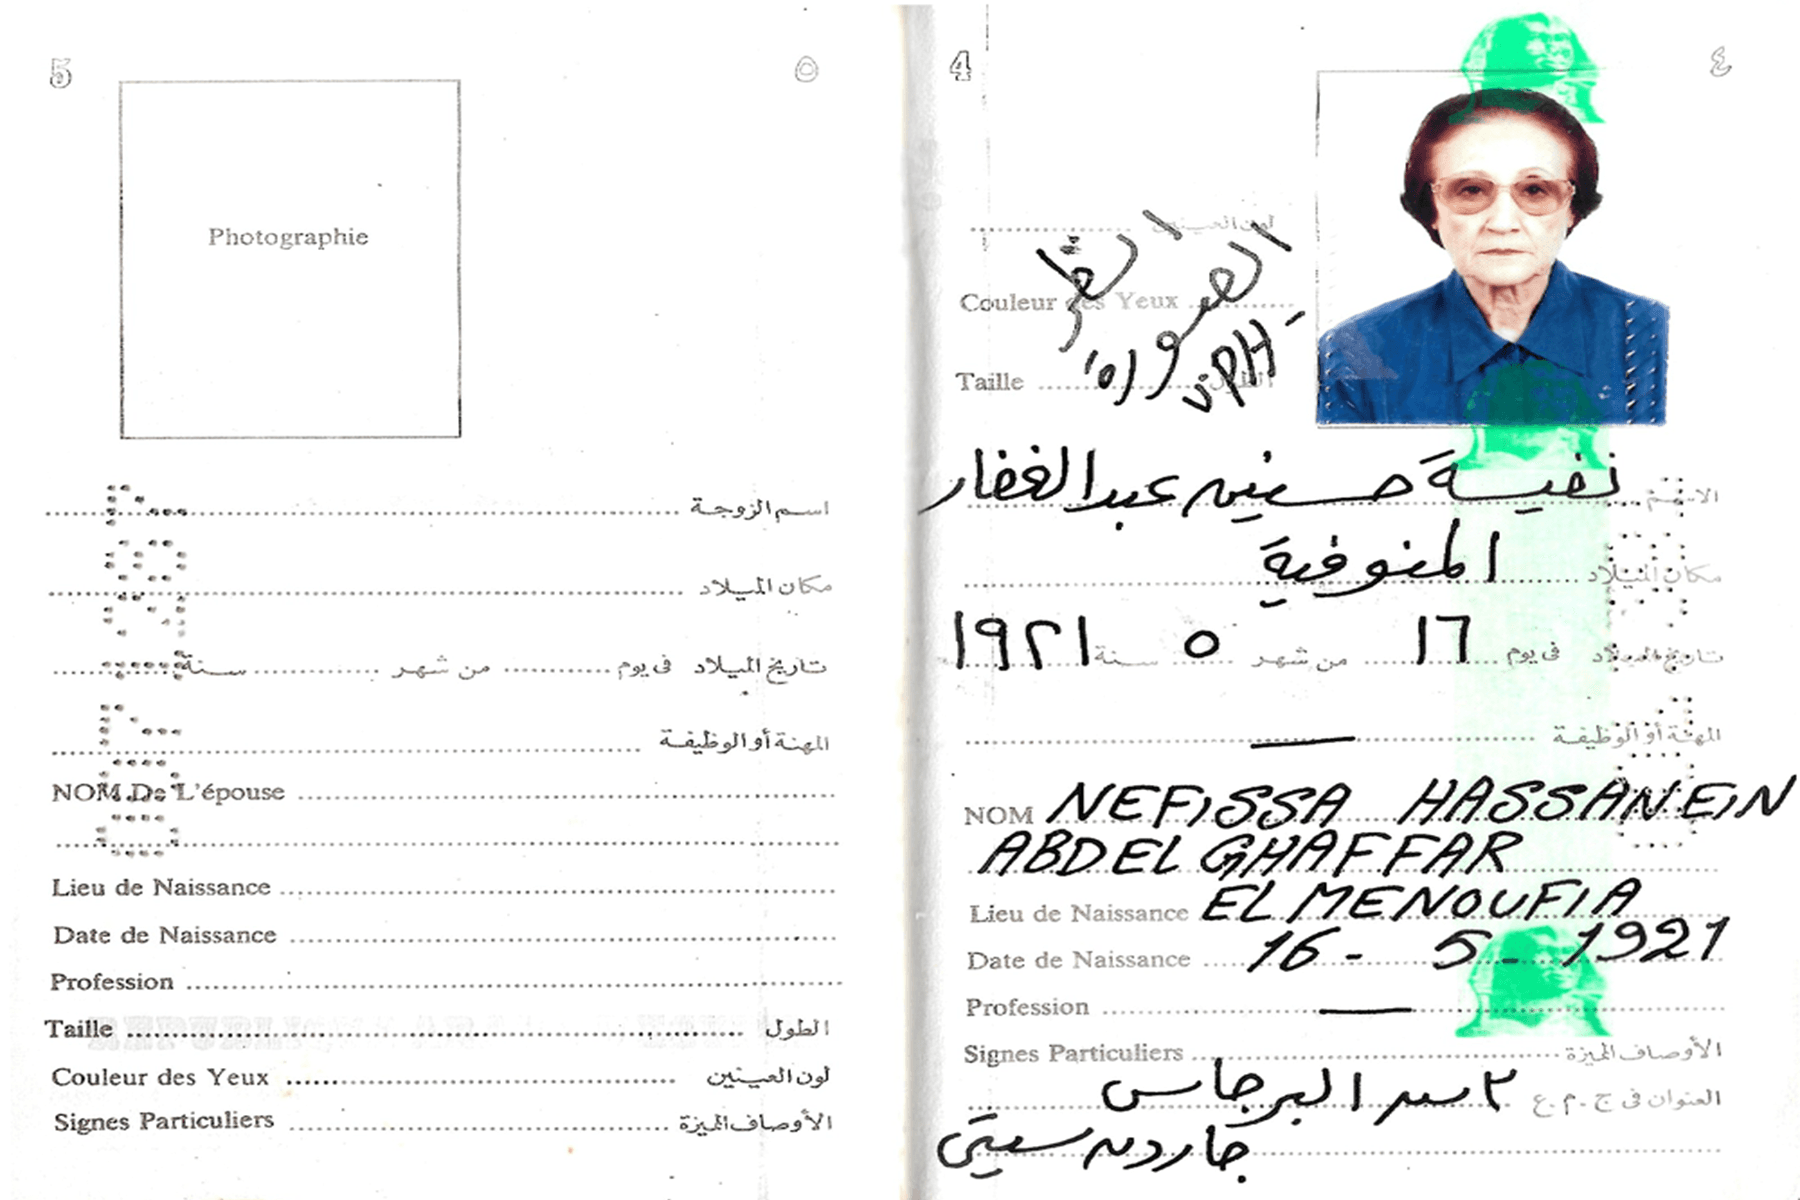 5 ٥
Photographie
اسم الزوجة
مكان الميلاد
تاريخ الميلاد في يوم من شهر سنة
المهنة أو الوظيفة
NOM De L'épouse
Lieu de Naissance
Date de Naissance
Profession
Taille الطول
Couleur des Yeux لون العينين
Signes Particuliers الأوصاف المميزة
4 ٤
لون العينين
Couleur des Yeux
Taille الطول
الاسم نفيسة حسنين عبد الغفار
مكان الميلاد المنوفية
تاريخ الميلاد في يوم ١٦ من شهر ٥ سنة ١٩٢١
المهنة أو الوظيفة —
NOM NEFISSA HASSANEIN
ABDEL GHAFFAR
Lieu de Naissance EL MENOUFIA
Date de Naissance 16 - 5 - 1921
Profession —
Signes Particuliers الأوصاف المميزة
العنوان في ج.م.ع ٢ البرجاس
جاردن سيتي